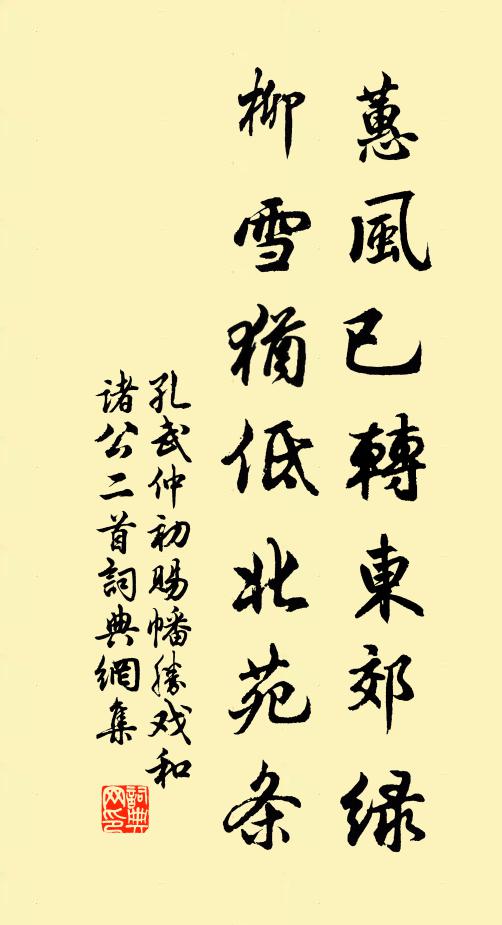 蕙風已轉東郊緑
柳雪猶低北苑条
孔武仲初賜幡勝戏和
諸公二首詞典網集
詞典
网印